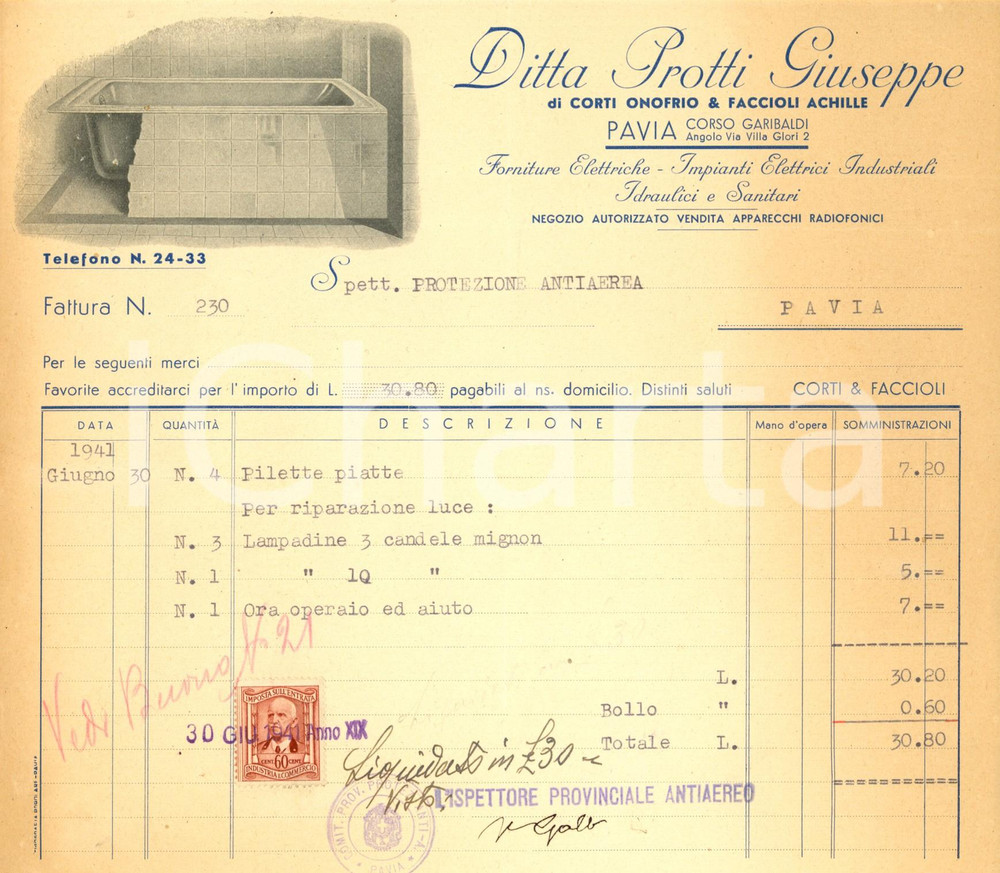 Ditta Protti Giuseppe
di CORTI ONOFRIO & FACCIOLI ACHILLE
PAVIA CORSO GARIBALDI
Angolo Via Villa Glori 2
Forniture Elettriche - Impianti Elettrici Industriali
Idraulici e Sanitari
NEGOZIO AUTORIZZATO VENDITA APPARECCHI RADIOFONICI
Telefono N. 24-33
Spett. PROTEZIONE ANTIAEREA
Fattura N. 230
PAVIA
Per le seguenti merci
Favorite accreditarci per l'importo di L. 30.80 pagabili al ns. domicilio. Distinti saluti CORTI & FACCIOLI
iCharta
DATA QUANTITÀ DESCRIZIONE Mano d'opera SOMMINISTRAZIONI
1941
Giugno 30 N. 4 Pilette piatte 7.20
Per riparazione luce :
N. 3 Lampadine 3 candele mignon 11.==
N. 1 " 10 " 5.==
N. 1 Ora operaio ed aiuto 7.==
L. 30.20
Bollo " 0.60
Totale L. 30.80
Vedi Buono N. 21
IMPOSTA SULL'ENTRATA
CENT. 60 CENT.
INDUSTRIA E COMMERCIO
30 GIU 1941 Anno XIX
Liquidato in £ 30
Visto:
L'ISPETTORE PROVINCIALE ANTIAEREO
COMIT. PROV. ANTI-A.
PAVIA